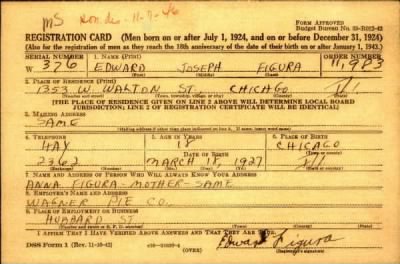 MS
FORM APPROVED
Budget Bureau No. 33-R012-42
REGISTRATION CARD (Men born on or after July 1, 1924, and on or before December 31, 1924)
(Also for the registration of men as they reach the 18th anniversary of the date of their birth on or after January 1, 1943.)
SERIAL NUMBER 1. NAME (Print) ORDER NUMBER
W 376 EDWARD JOSEPH FIGURA 11,983
(First) (Middle) (Last)
2. PLACE OF RESIDENCE (Print)
1353 W. WALTON ST. CHICAGO Ill
(Number and street) (Town, township, village or city) (County) (State)
[THE PLACE OF RESIDENCE GIVEN ON LINE 2 ABOVE WILL DETERMINE LOCAL BOARD
JURISDICTION; LINE 2 OF REGISTRATION CERTIFICATE WILL BE IDENTICAL]
3. MAILING ADDRESS
SAME
[Mailing address if other than place indicated on line 2. If same, insert word same]
4. TELEPHONE 5. AGE IN YEARS 6. PLACE OF BIRTH
HAY 18 CHICAGO
DATE OF BIRTH
2362 MARCH 18, 1927 Ill
7. NAME AND ADDRESS OF PERSON WHO WILL ALWAYS KNOW YOUR ADDRESS
ANNA FIGURA-MOTHER-SAME
8. EMPLOYER'S NAME AND ADDRESS
WAGNER PIE CO.
9. PLACE OF EMPLOYMENT OR BUSINESS
HUBBARD ST
I AFFIRM THAT I HAVE VERIFIED ABOVE ANSWERS AND THAT THEY ARE TRUE.
DSS Form 1 (Rev. 11-16-42) (OVER) Edward Figura